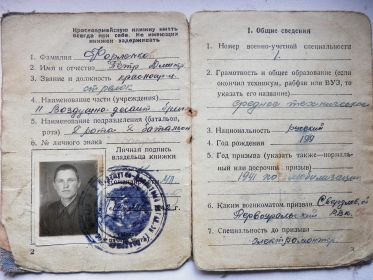 Красноармейскую книжку иметь
всегда при себе. Не имеющих
книжки задерживать
1. Фамилия
2. Имя и отчество Петр
3. Звание и должность красноар-
стрелок
4. Наименование части (учреждения)
Воздушно-десант
5. Наименование подразделения (батальон,
рота) 2 рота 2 батальон
6. № личного знака
Личная подпись
владельца книжки
2
I. Общие сведения
1. Номер военно-учетной специальности
1.
2. Грамотность и общее образование (если
окончил техникум, рабфак или ВУЗ, то
указать его название)
среднее техническое
3. Национальность русский
4. Год рождения
5. Год призыва (указать также—нормаль-
ный или досрочный призыв)
1941 по мобилизации
6. Каким военкоматом призван Свердлов
Первоуральский РВК
7. Специальность до призыва
электромонтер
3